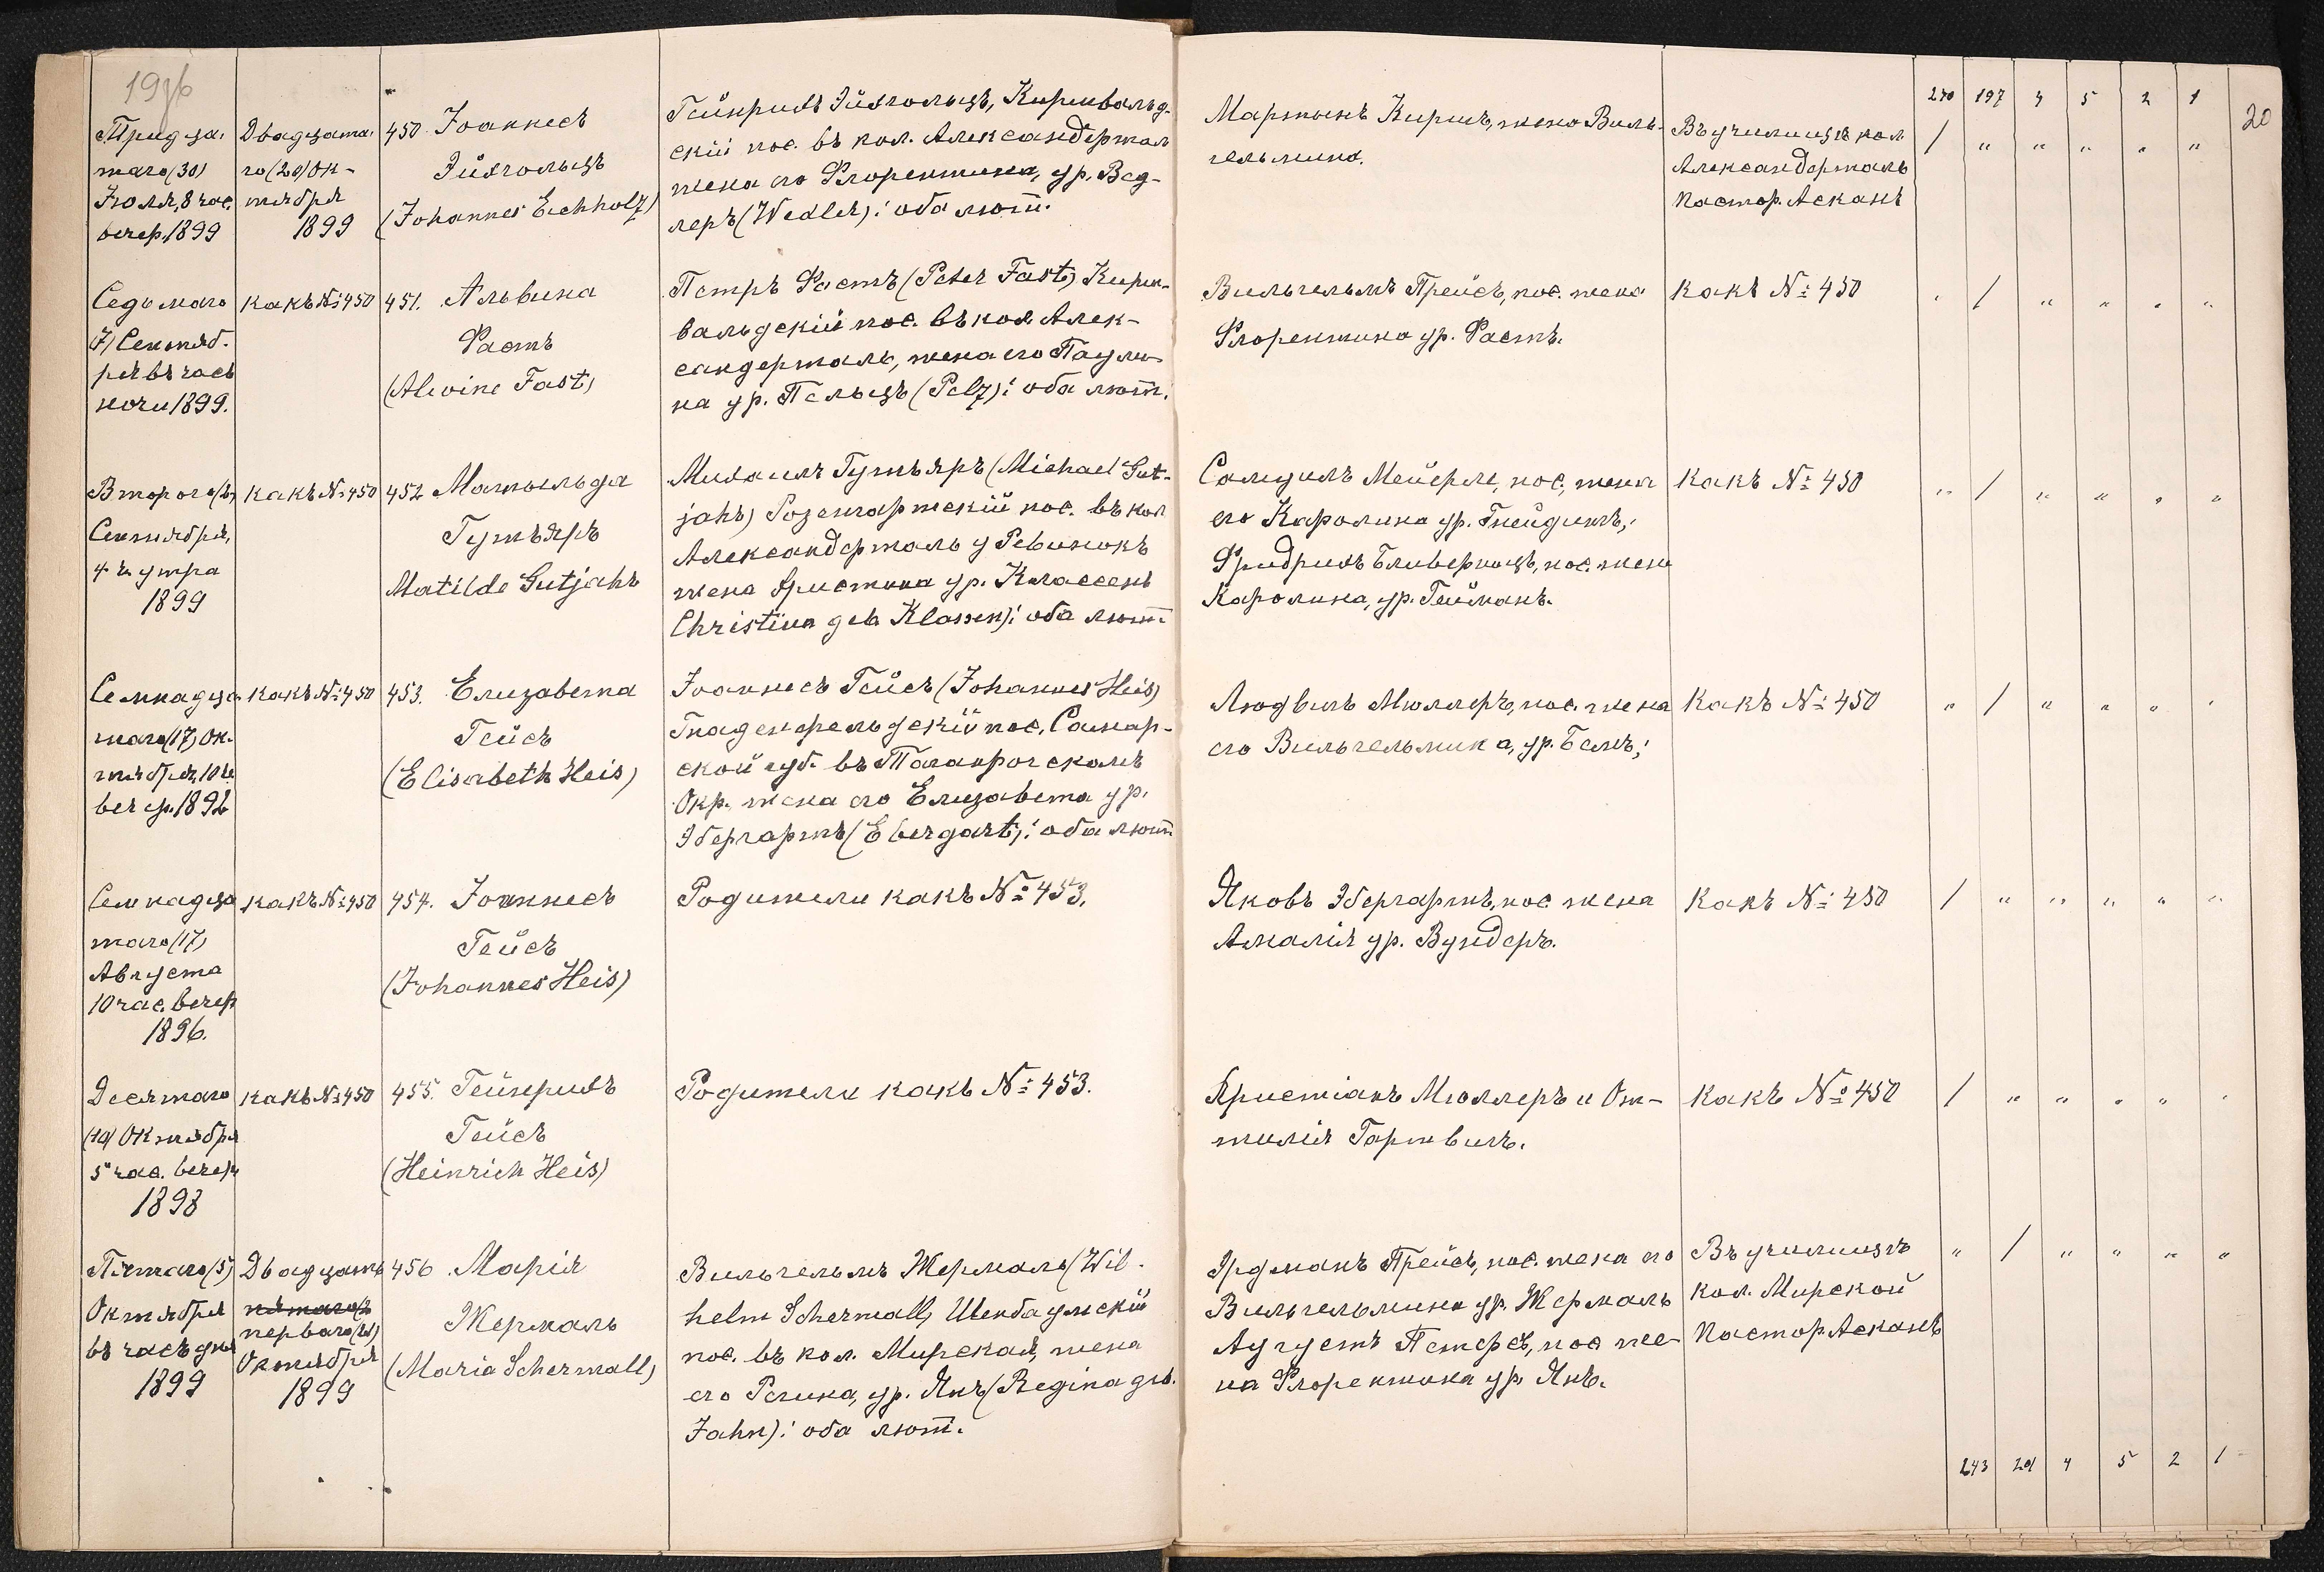 20
240 197 4 5 2 1
Тридца-
таго (30)
Іюля, 8 час.
вечер. 1899
Двадцата-
го (20) Ок-
тября
1899
450. Іоаннесъ
Эйхгольцъ
(Johannes Eichholz)
Гейнрихъ Эйхгольцъ, Киршвальд-
скій пос. въ кол. Александерталь
жена его Флорентина, ур. Вед-
леръ (Wedler): оба лют.
Мартынъ Киршъ, жена Виль-
гельмина.
Въ училищѣ кол.
Александерталь
Пастор. Асканъ
/ " " " " "
Седьмаго
(7) Сентяб-
ря въ часъ
ночи 1899.
какъ № 450
451. Альвина
Фастъ
(Alwine Fast)
Петръ Фастъ (Peter Fast) Кирш-
вальдскій пос. въ кол. Алек-
сандерталь, жена его Паули-
на ур. Пельцъ (Pelz): оба лют.
Вильгельмъ Прейсъ, пос. жена
Флорентина ур. Фастъ.
какъ № 450
" / " " " "
Второго (2)
Сентября,
4 ч. утра
1899
какъ № 450
452 Матильда
Гутъяръ
Matilde Gutjahr
Михаилъ Гутъяръ (Michael Gut-
jahr) Розенгартскій пос. въ кол
Александерталь у Ревинокъ
жена Христина ур. Классенъ
Christina geb Klassen): оба лют.
Самуилъ Мейерле, пос., жена
его Каролина ур. Гнейдингъ,
Фридрихъ Бливерницъ, пос. жена
Каролина, ур. Гейманъ.
какъ № 450
" / " " " "
Семнадца
таго (17) Ок-
тября, 10 ч.
вечер. 1892
какъ № 450
453. Елизавета
Гейсъ
(Elisabeth Heis)
Іоаннесъ Гейсъ (Johannes Heis)
Гнаденфельдскій пос. Самар-
ской губ. въ Таганрогскомъ
Окр. жена его Елизавета ур.
Эбергартъ (Ebergart): оба лют
Людвигъ Мюллеръ, пос. жена
его Вильгельмина, ур. Бемъ;
какъ № 450
" / " " " "
Семнадца
таго (17)
Августа
10 час. вечер
1896.
какъ № 450
454. Іоаннесъ
Гейсъ
(Johannes Heis)
Родители какъ № 453.
Яковъ Эбергартъ, пос. жена
Амалія ур. Вундеръ.
какъ № 450
/ " " " " "
Десятаго
(10) Октября
5 час. вечер
1898
какъ № 450
455. Гейнрихъ
Гейсъ
(Heinrich Heis)
Родители какъ № 453.
Христіанъ Мюллеръ и От-
тилія Гартвигъ.
какъ № 450
/ " " " " "
Пятаго (5)
Октября
въ часъ дня
1899
Двадцать
перваго (21)
Октября
1899
456 Марія
Жермаль
(Maria Schermall)
Вильгельмъ Жермаль (Wil-
helm Schermall, Шенбаумскій
пос. въ кол. Мирская, жена
его Регина, ур. Янъ (Regina geb.
Jahn): оба лют.
Эрдманъ Прейсъ, пос. жена его
Вильгельмина ур. Жермаль
Аугустъ Петерсъ, пос же-
на Флорентина ур. Янъ.
Въ училищѣ
кол. Мирской
Пастор Асканъ
" / " " " "
243 201 4 5 2 1